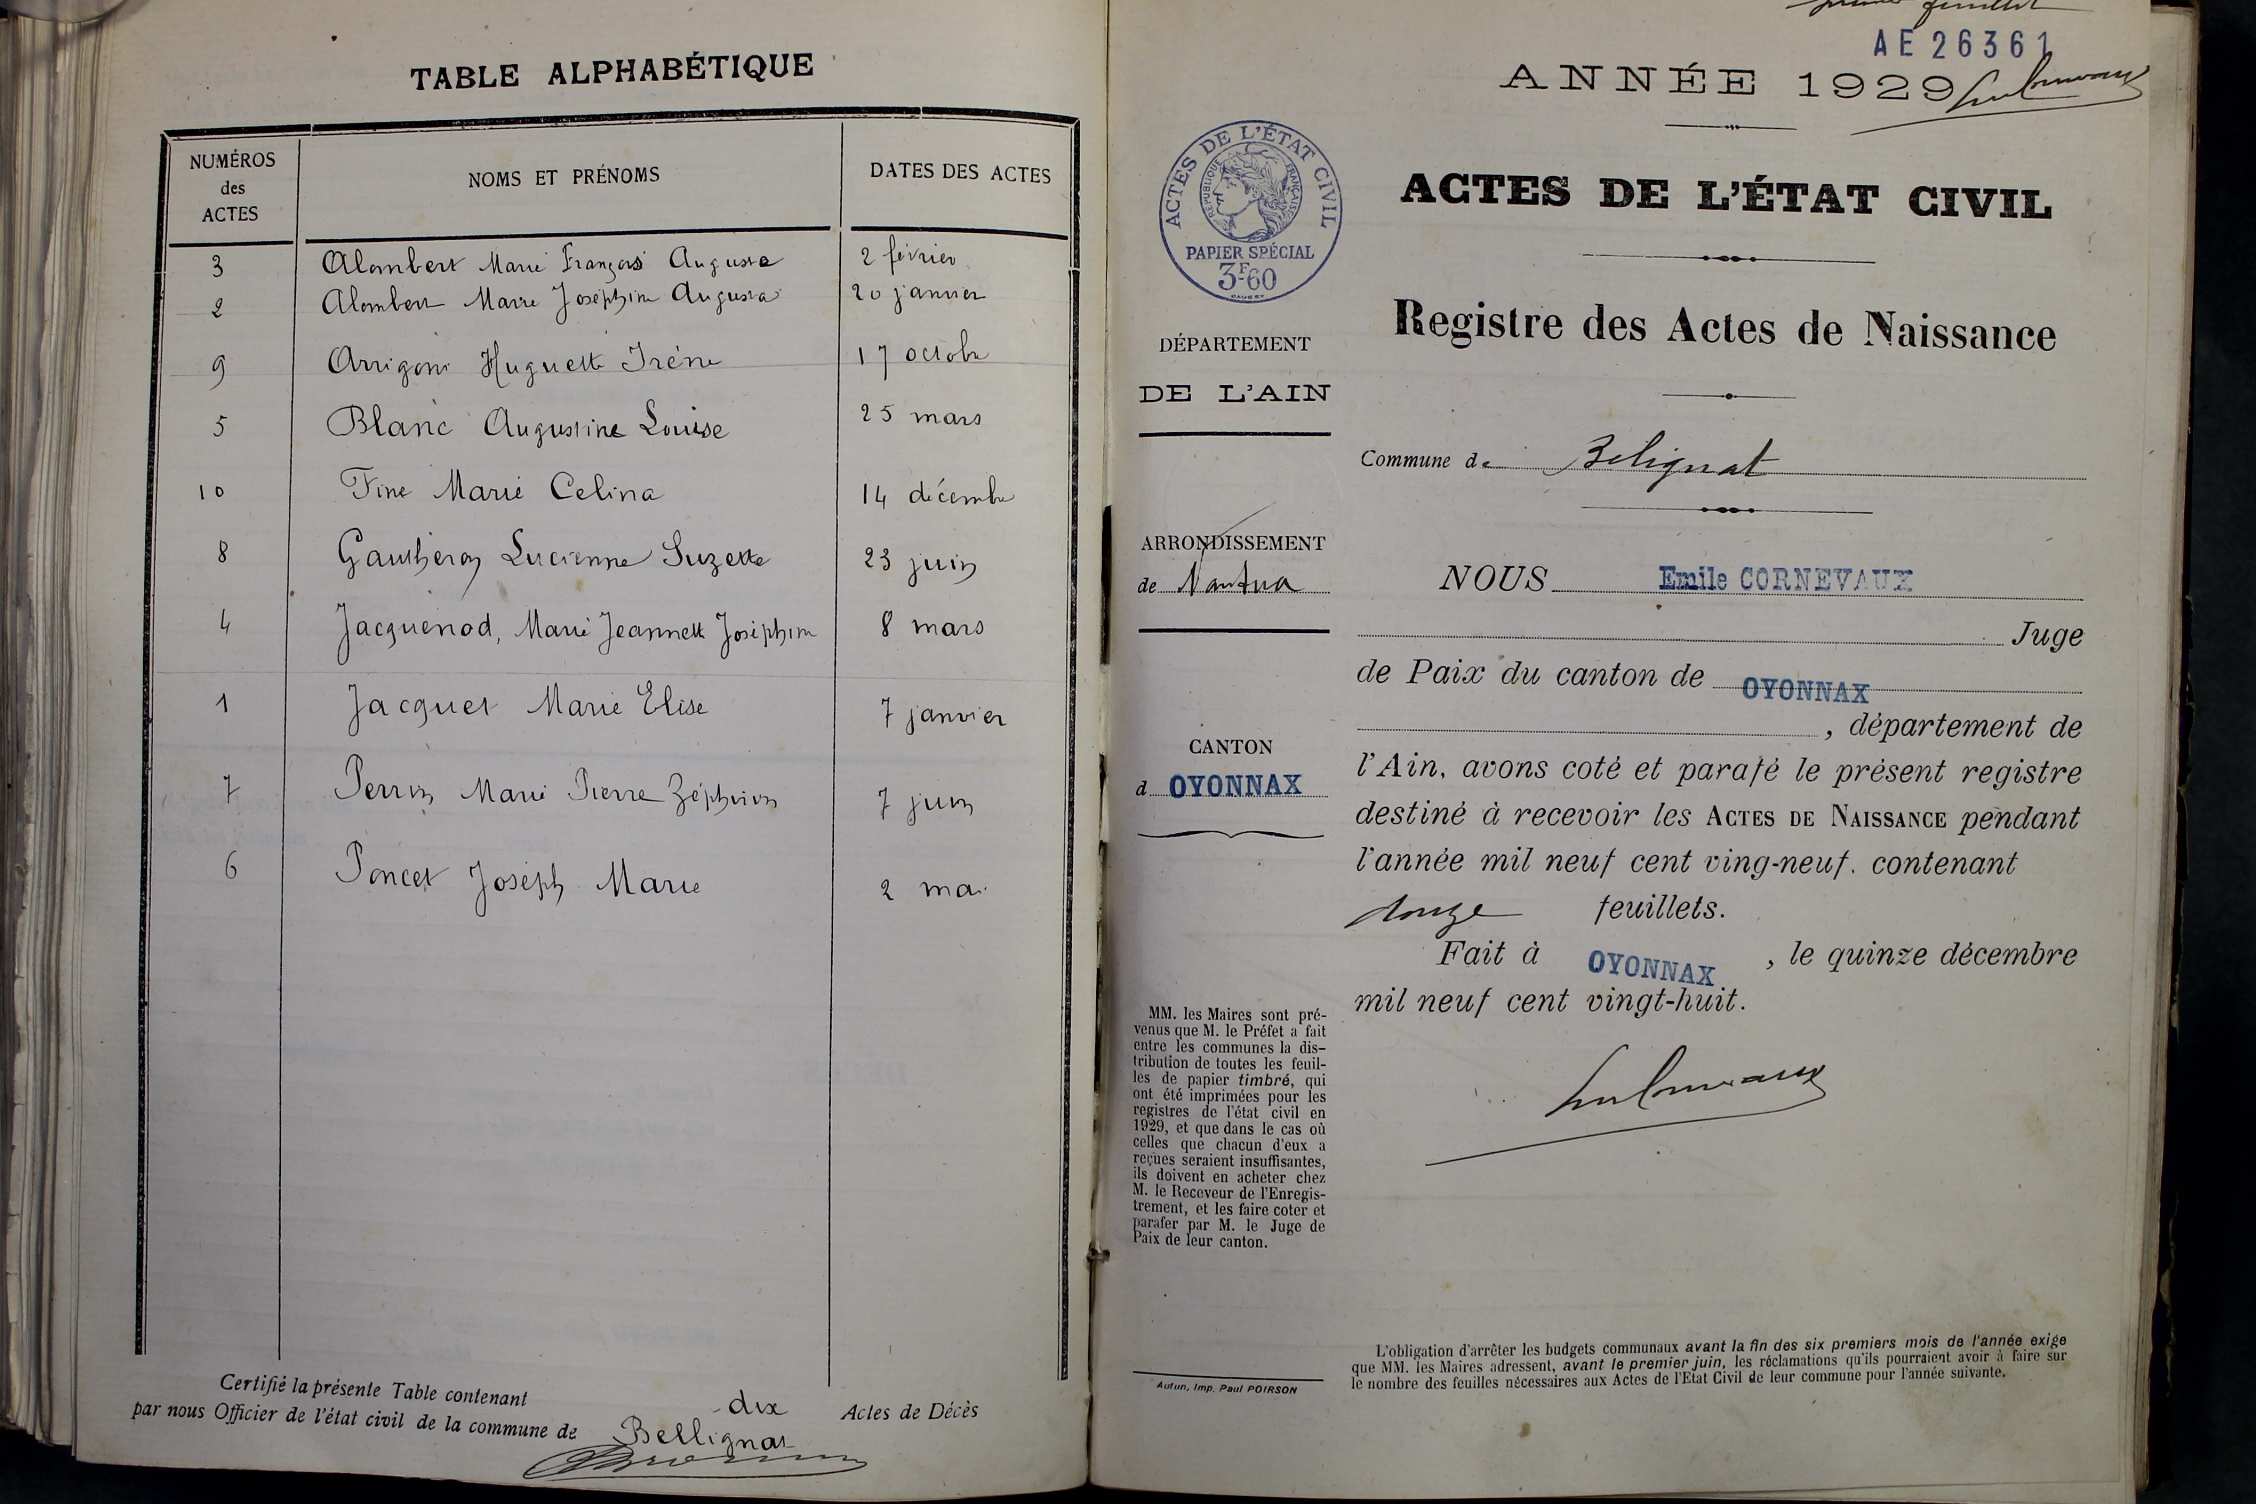 TABLE ALPHABÉTIQUE
NUMÉROS des ACTES NOMS ET PRÉNOMS DATES DES ACTES
3 Alombert Marie François Auguste 2 février
2 Alombert Marie Joséphine Augusta 20 janvier
9 Arrigoni Huguette Irène 17 octobre
5 Blanc Augustine Louise 25 mars
10 Fine Marie Celina 14 décembre
8 Gautheron Lucienne Suzette 23 juin
4 Jacquenod, Marie Jeannette Joséphine 8 mars
1 Jacquet Marie Elise 7 janvier
7 Perrin Marie Pierre Zéphirin 7 juin
6 Poncet Joseph Marie 2 mai
Certifié la présente Table contenant dix Actes de Décès
par nous Officier de l'état civil de la commune de Bellignat
premier feuillet
AE 26361
ANNÉE 1929
ACTES DE L'ÉTAT CIVIL
RÉPUBLIQUE FRANÇAISE
PAPIER SPÉCIAL
3F60
ACTES DE L'ÉTAT CIVIL
Registre des Actes de Naissance
DÉPARTEMENT
DE L'AIN
Commune de Belignat
ARRONDISSEMENT
de Nantua
CANTON
d OYONNAX
NOUS Emile CORNEVAUX
Juge
de Paix du canton de OYONNAX
, département de
l'Ain, avons coté et parafé le présent registre
destiné à recevoir les ACTES DE NAISSANCE pendant
l'année mil neuf cent ving-neuf. contenant
douze feuillets.
Fait à OYONNAX , le quinze décembre
mil neuf cent vingt-huit.
MM. les Maires sont pré-
venus que M. le Préfet a fait
entre les communes la dis-
tribution de toutes les feuil-
les de papier timbré, qui
ont été imprimées pour les
registres de l'état civil en
1929, et que dans le cas où
celles que chacun d'eux a
reçues seraient insuffisantes,
ils doivent en acheter chez
M. le Receveur de l'Enregis-
trement, et les faire coter et
parafer par M. le Juge de
Paix de leur canton.
Autun, Imp. Paul POIRSON
L'obligation d'arrêter les budgets communaux avant la fin des six premiers mois de l'année exige
que MM. les Maires adressent, avant le premier juin, les réclamations qu'ils pourraient avoir à faire sur
le nombre des feuilles nécessaires aux Actes de l'Etat Civil de leur commune pour l'année suivante.